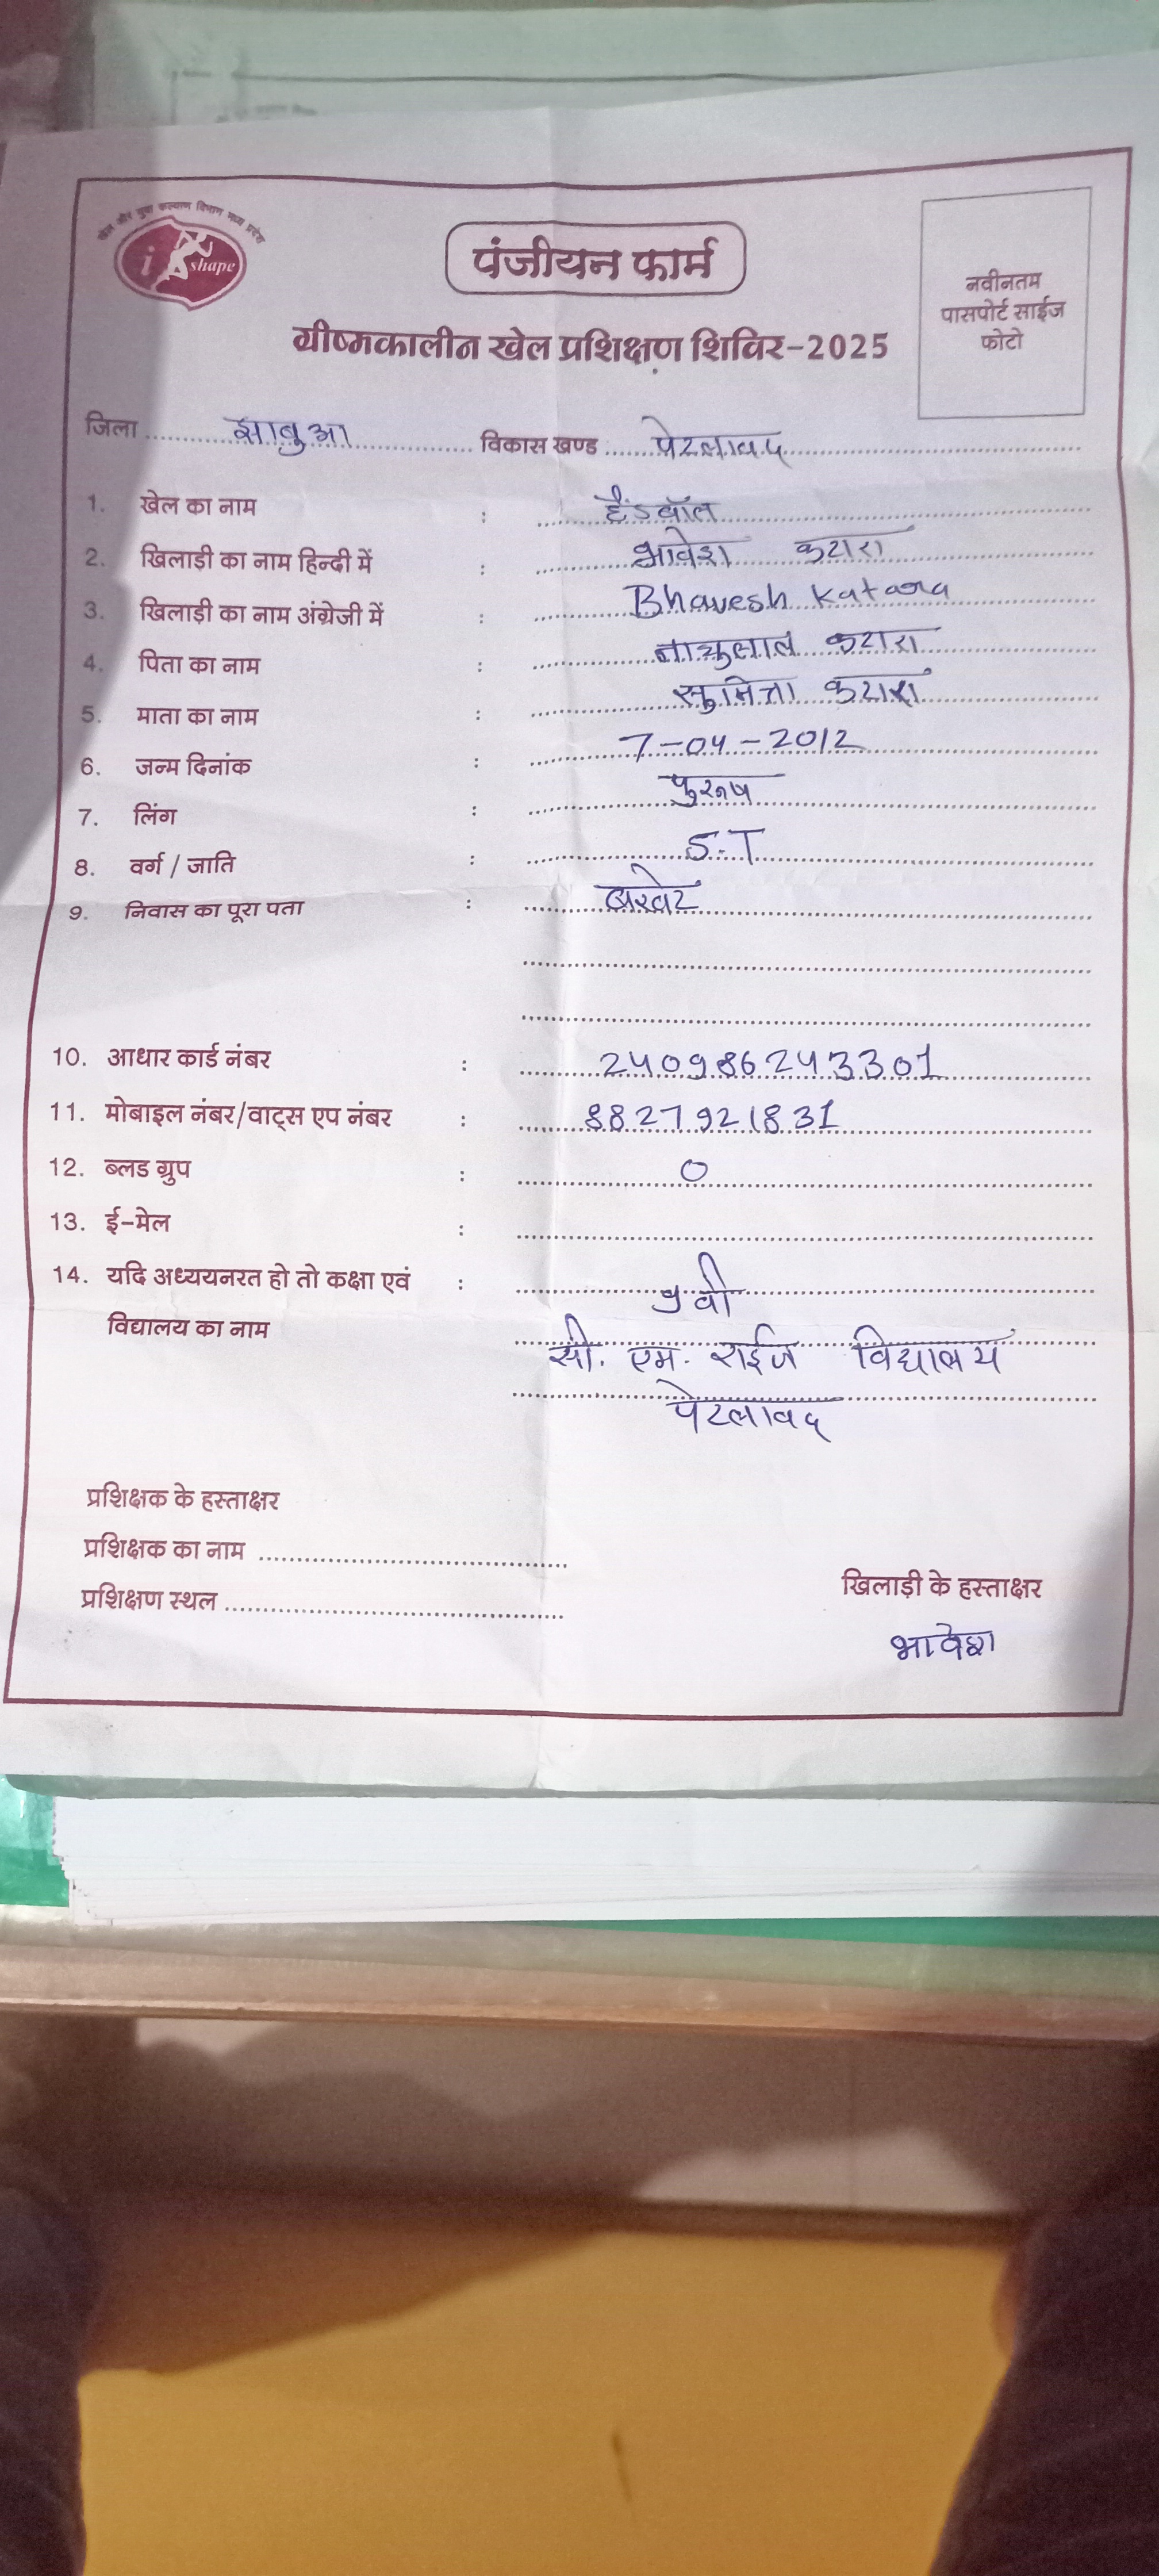 खेल और युवा कल्याण विभाग मध्य प्रदेश
i shape
पंजीयन फार्म
ग्रीष्मकालीन खेल प्रशिक्षण शिविर-2025
नवीनतम
पासपोर्ट साईज
फोटो
जिला झाबुआ विकास खण्ड पेटलावद
1. खेल का नाम : हैंडबॉल
2. खिलाड़ी का नाम हिन्दी में : भावेश कटारा
3. खिलाड़ी का नाम अंग्रेजी में : Bhavesh Katara
4. पिता का नाम : कटारा
5. माता का नाम : सुमित्रा कटारा
6. जन्म दिनांक : 7-04-2012
7. लिंग : पुरूष
8. वर्ग / जाति : S.T
9. निवास का पूरा पता : बरवेट
10. आधार कार्ड नंबर : 240986243301
11. मोबाइल नंबर/वाट्स एप नंबर : 8827921831
12. ब्लड ग्रुप : O
13. ई-मेल :
14. यदि अध्ययनरत हो तो कक्षा एवं : 9 वी
विद्यालय का नाम
सी. एम. राईज विद्यालय
पेटलावद
प्रशिक्षक के हस्ताक्षर
प्रशिक्षक का नाम
प्रशिक्षण स्थल
खिलाड़ी के हस्ताक्षर
भावेश